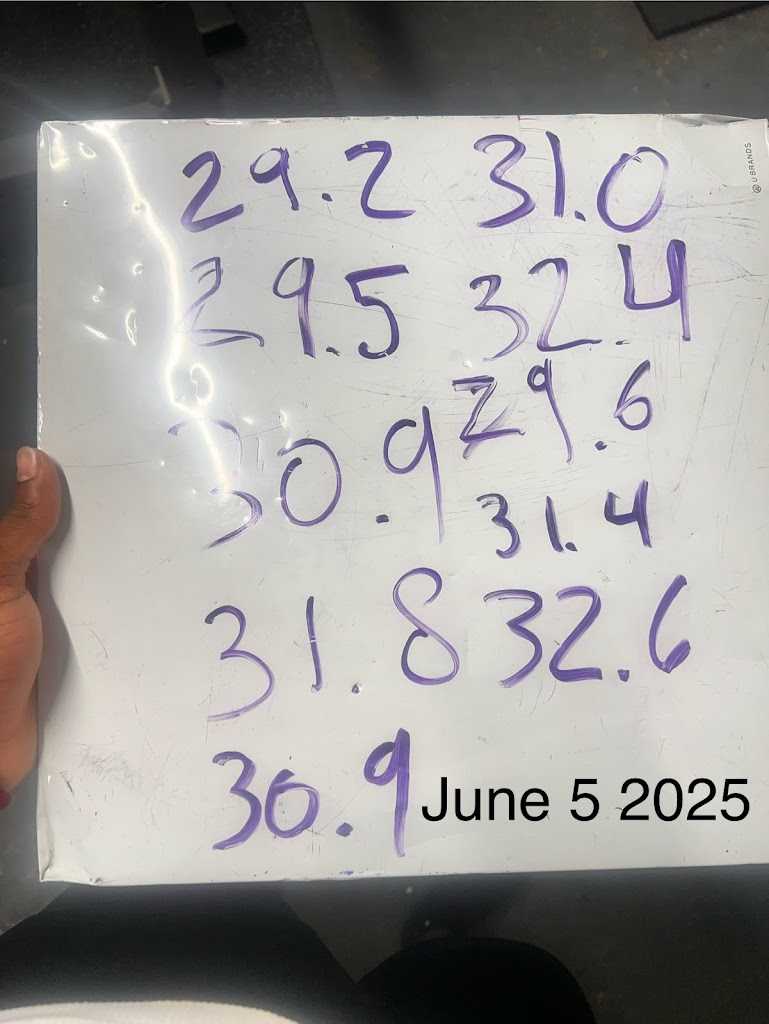 29.2 31.0
29.5 32.4
30.9 29.6
31.4
31.8 32.6
30.9
June 5 2025
U BRANDS